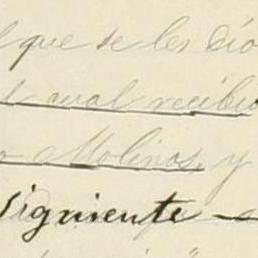 que se les dio
cual recibio
Molinos, y
siguiente